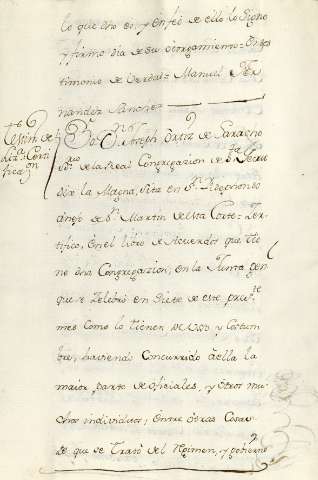 lo que doy fe, y en fee de ello lo Signo
y firmo dia de su otorgamiento = En tes
timonio de Verdad = Manuel Fer
nandez Sanchez
Testim.º de
Certi
ficaz.on
Yo D.n Joseph Ortiz de Saracho
S.rio de la Real Congregazion de S.ta Gertru
dis la Magna, sita en S.n Ildephonso
Anejo de S.n Martin de esta Corte = Zer
tifico, en el libro de Acuerdos que tie
ne dha Congregazion, en la Junta gen
que se Zelebró en Siete de este pres.te
mes Como lo tienen de uso y Costum
bre, haviendo Concurrido á ella la
maior parte de oficiales, y otros mu
chos individuos; Entre otras Cosas
de que se Trató del Rejimen, y govierno